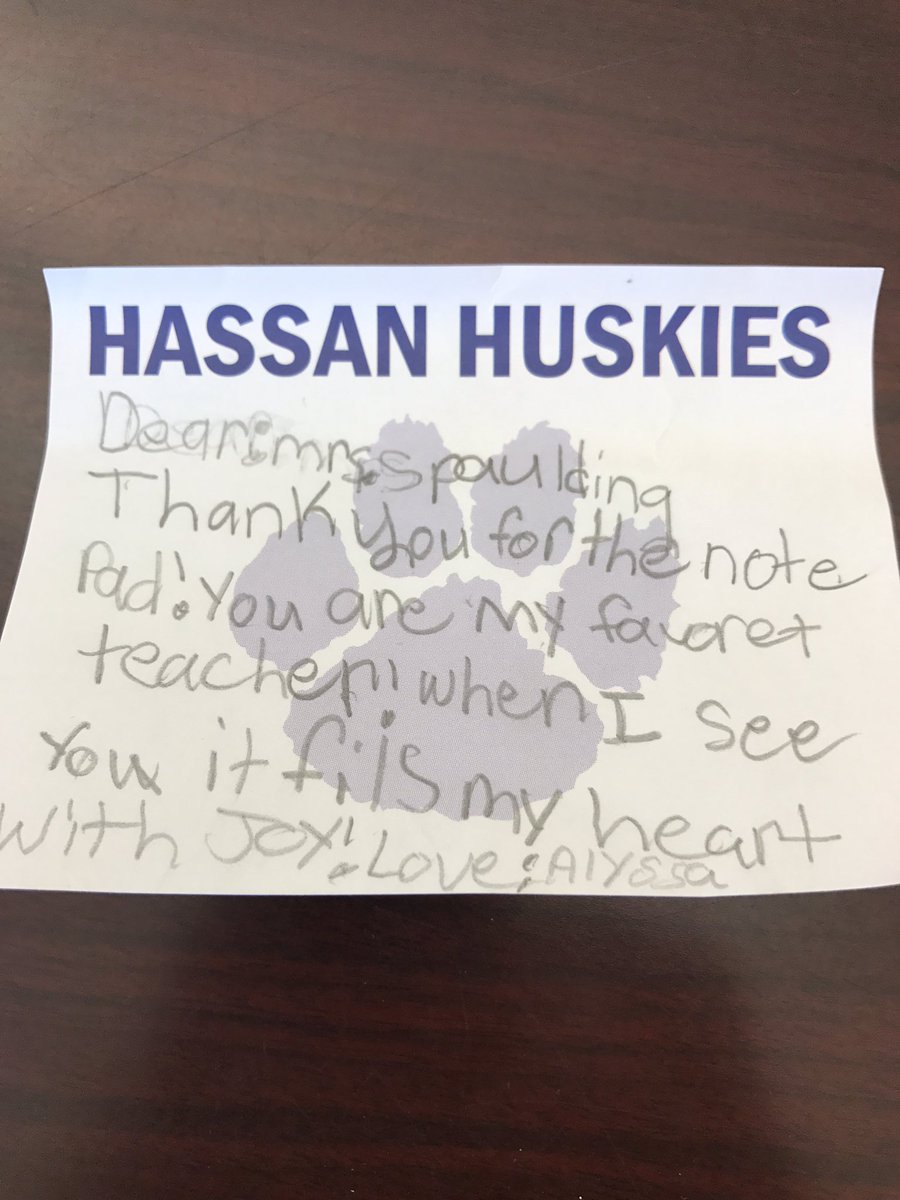 HASSAN HUSKIES
Dear: mrs. spaulding
Thank you for the note
Pad! You are my favoret
teacher!! when I see
You it fils my heart
With Joy! Love: Alyssa